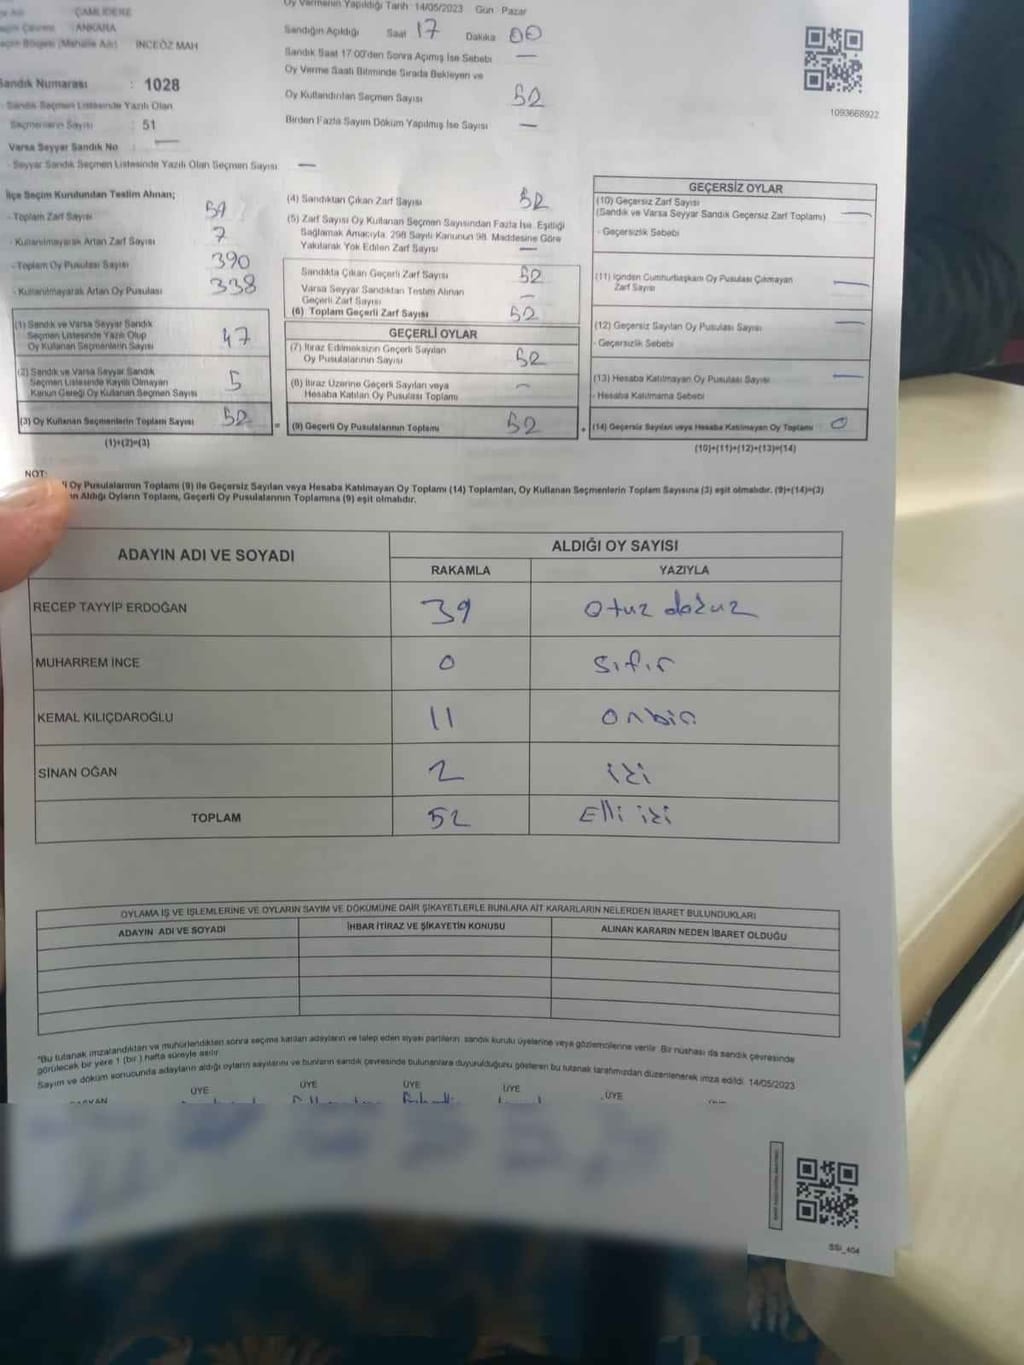 ÇAMLIDERE
ANKARA
İNCEÖZ MAH
Sandık Numarası : 1028
Sandık Seçmen Listesinde Yazılı Olan
Seçmenlerin Sayısı : 51
Varsa Seyyar Sandık No —
- Seyyar Sandık Seçmen Listesinde Yazılı Olan Seçmen Sayısı —
Oy Vermenin Yapıldığı Tarih :14/05/2023 Gün : Pazar
Sandığın Açıldığı Saat 17 Dakika 00
Sandık Saat 17:00'den Sonra Açımış İse Sebebi —
Oy Verme Saati Bitiminde Sırada Bekleyen ve
Oy Kullandırılan Seçmen Sayısı 52
Birden Fazla Sayım Döküm Yapılmış İse Sayısı —
1093668922
İlçe Seçim Kurulundan Teslim Alınan;
- Toplam Zarf Sayısı
- Kullanılmayarak Artan Zarf Sayısı 7
- Toplam Oy Pusulası Sayısı 390
- Kullanılmayarak Artan Oy Pusulası 338
(1) Sandık ve Varsa Seyyar Sandık
Seçmen Listesinde Yazılı Olup
Oy Kullanan Seçmenlerin Sayısı 47
(2) Sandık ve Varsa Seyyar Sandık
Seçmen Listesinde Kayıtlı Olmayan
Kanun Gereği Oy Kullanan Seçmen Sayısı 5
(3) Oy Kullanan Seçmenlerin Toplam Sayısı 52 =
(1)+(2)=(3)
(4) Sandıktan Çıkan Zarf Sayısı 52
(5) Zarf Sayısı Oy Kullanan Seçmen Sayısından Fazla İse, Eşitliği
Sağlamak Amacıyla, 298 Sayılı Kanunun 98. Maddesine Göre
Yakılarak Yok Edilen Zarf Sayısı —
Sandıkta Çıkan Geçerli Zarf Sayısı 52
Varsa Seyyar Sandıktan Teslim Alınan
Geçerli Zarf Sayısı —
(6) Toplam Geçerli Zarf Sayısı 52
GEÇERLİ OYLAR
(7) İtiraz Edilmeksizin Geçerli Sayılan
Oy Pusulalarının Sayısı 52
(8) İtiraz Üzerine Geçerli Sayılan veya
Hesaba Katılan Oy Pusulası Toplamı —
(9) Geçerli Oy Pusulalarının Toplamı 52 +
GEÇERSİZ OYLAR
(10) Geçersiz Zarf Sayısı
(Sandık ve Varsa Seyyar Sandık Geçersiz Zarf Toplamı) —
- Geçersizlik Sebebi
(11) İçinden Cumhurbaşkanı Oy Pusulası Çıkmayan
Zarf Sayısı —
(12) Geçersiz Sayılan Oy Pusulası Sayısı —
- Geçersizlik Sebebi
(13) Hesaba Katılmayan Oy Pusulası Sayısı —
- Hesaba Katılmama Sebebi
(14) Geçersiz Sayılan veya Hesaba Katılmayan Oy Toplamı 0
(10)+(11)+(12)+(13)=(14)
NOT:
Oy Pusulalarının Toplamı (9) ile Geçersiz Sayılan veya Hesaba Katılmayan Oy Toplamı (14) Toplamları, Oy Kullanan Seçmenlerin Toplam Sayısına (3) eşit olmalıdır. (9)+(14)=(3)
n Aldığı Oyların Toplamı, Geçerli Oy Pusulalarının Toplamına (9) eşit olmalıdır.
ADAYIN ADI VE SOYADI ALDIĞI OY SAYISI
RAKAMLA YAZIYLA
RECEP TAYYİP ERDOĞAN 39 Otuz dokuz
MUHARREM İNCE 0 Sıfır
KEMAL KILIÇDAROĞLU 11 Onbir
SİNAN OĞAN 2 iki
TOPLAM 52 Elli iki
OYLAMA İŞ VE İŞLEMLERİNE VE OYLARIN SAYIM VE DÖKÜMÜNE DAİR ŞİKAYETLERLE BUNLARA AİT KARARLARIN NELERDEN İBARET BULUNDUKLARI
ADAYIN ADI VE SOYADI İHBAR İTİRAZ VE ŞİKAYETİN KONUSU ALINAN KARARIN NEDEN İBARET OLDUĞU
"Bu tutanak imzalandıktan ve mühürlendikten sonra seçime katılan adayların ve talep eden siyasi partilerin, sandık kurulu üyelerine veya gözlemcilerine verilir. Bir nüshası da sandık çevresinde
görülecek bir yere 1 (bir ) hafta süreyle asılır.
Sayım ve döküm sonucunda adayların aldığı oyların sayılarını ve bunların sandık çevresinde bulunanlara duyurulduğunu gösteren bu tutanak tarafımızdan düzenlenerek imza edildi. 14/05/2023
BAŞKAN ÜYE ÜYE ÜYE ÜYE ÜYE
SSI_404